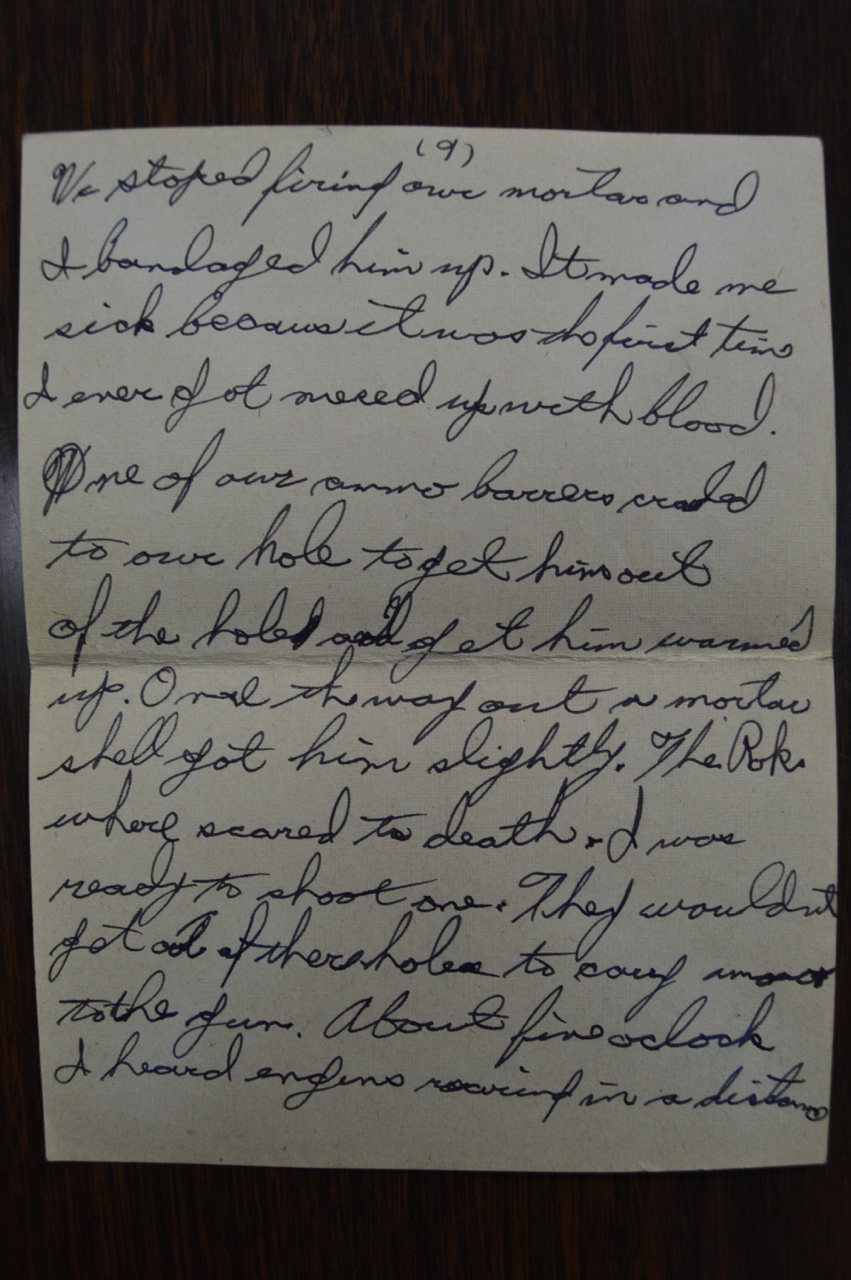 (9)
We stoped firing our mortar and
I bandaged him up. It made me
sick becaus it was the first time
I ever got messed up with blood.
One of our ammo barrers crawled
to our hole to get him out
of the hole and get him warmed
up. On the way out a mortar
shell got him slightly. The Roks
where scared to death. I was
ready to shoot one. They wouldnt
get out of there holes to cary
to the gun. About five oclock
I heard engens roaring in a distance